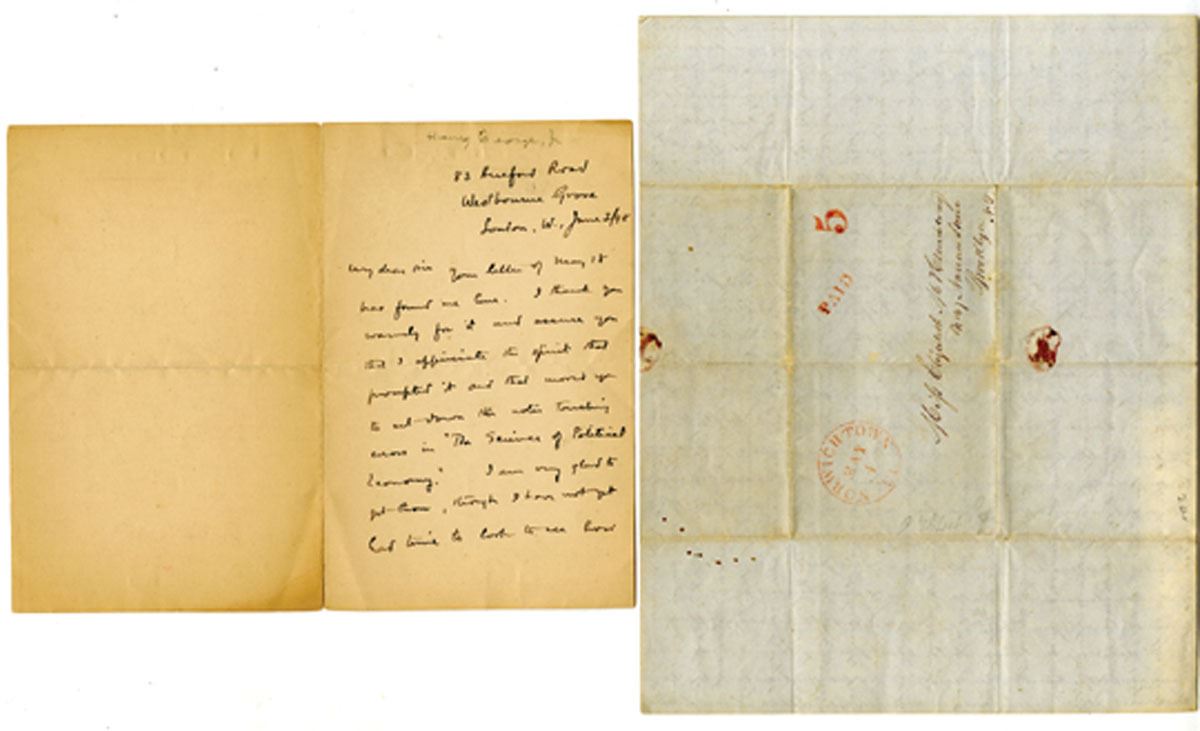 Henry George, Jr
83 Road
Westbourne Grove
London, W., June 2/98
My dear sir your letter of May 18
has found me here. I thank you
warmly for it and assure you
that I appreciate the spirit that
prompted it and that moved you
to set down the notes touching
errors in "The Science of Political
Economy." I am very glad to
get them, though I have not yet
had time to look to see how
5
PAID
Miss Elizabeth
Brooklyn
NORWICH TOWN
MAY